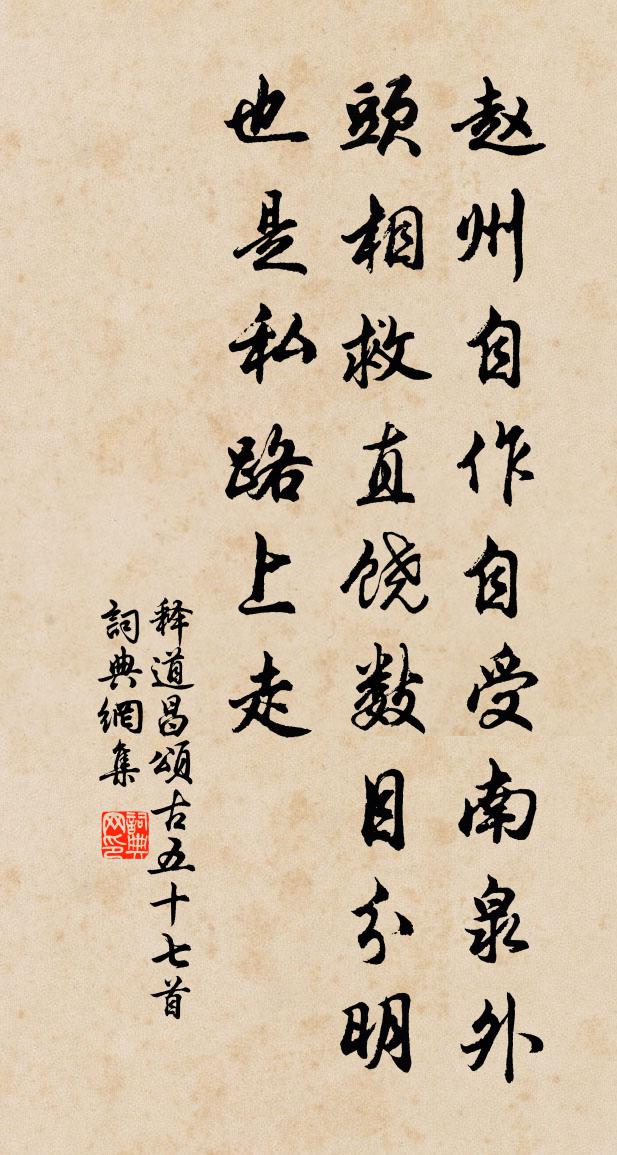 赵州自作自受南泉外
頭相救直饶数目分明
也是私路上走
释道昌頌古五十七首
詞典網集
詞典网印